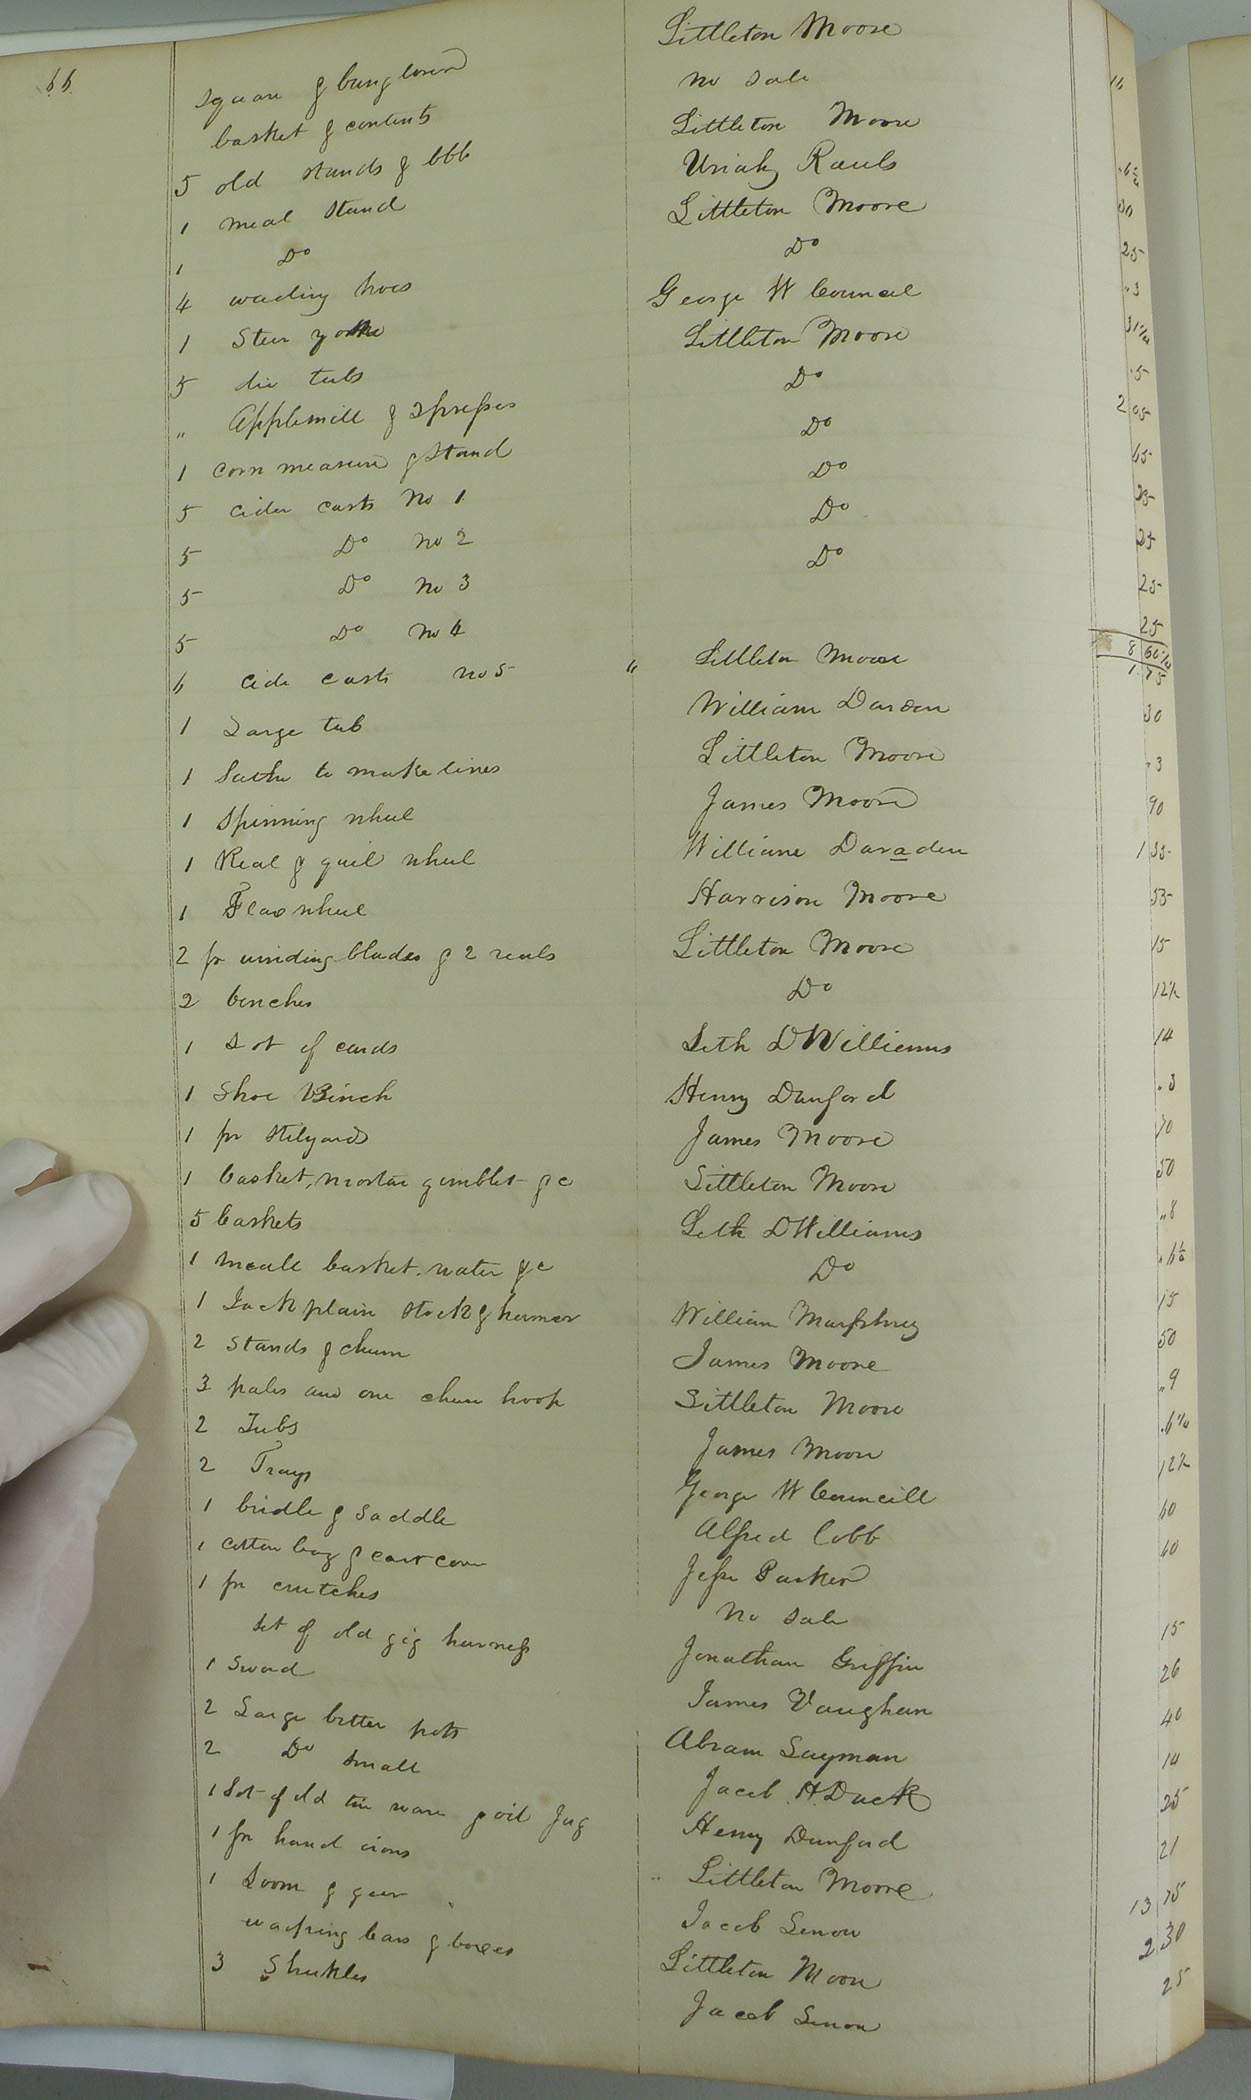 66
Littleton Moore 10
square & bung borer no sale
basket & contents Littleton Moore .6¼
5 old stands & bbb Uriah Rauls 30
1 meal stand Littleton Moore 25
1 Do Do .3
4 weeding hoes George W Councel 31¼
1 Steer yoke Littleton Moore .5
5 tubs Do 2 05
" Applemill & 2 presses Do 65
1 corn measure & stand Do 25
5 cider casts No 1 Do 25
5 Do no 2 Do 25
5 Do No 3 25
5 Do No 4 8 66¼
6 cide casts no 5 " Littleton Moore 1 75
1 Large tub William Darden 30
1 Lathe to make lines Littleton Moore .3
1 Spinning wheel James Moore 90
1 Real & quil wheel William Daraden 1 35
1 Flax wheel Harrison Moore 53
2 pr winding blades & 2 reals Littleton Moore 15
2 benches Do 12½
1 Lot of cards Seth D Williams 14
1 Shoe Binch Henry Dunford .3
1 pr stilyards James Moore 70
1 basket, mortar gimblet &c Littleton Moore 50
5 baskets Seth D Williams "8
1 meale basket. water &c Do .6¼
1 Jack plain stock & hamer William Murphrey 15
2 Stands & churn James Moore 50
3 pales and one churn hoop Littleton Moore "9
2 Tubs James Moore .6¼
2 Trays George W Councill 12½
1 bridle & Saddle Alfred Cobb 60
1 cotton bag & corn Jesse Parker 60
1 pr crutches no sale
set of old gig harness Jonathan Griffin 15
1 Sword James Vaughan 26
2 Large butter pots Abram Layman 40
2 Do small Jacob H. Duck 10
1 Lot of old tin ware & oil Jug Henry Dunford 25
1 pr hand irons Littleton Moore 21
1 Loom & gear Jacob Senon 13 75
warping bars & boxes Littleton Moore 2 30
3 Shuttles Jacob Senon 25